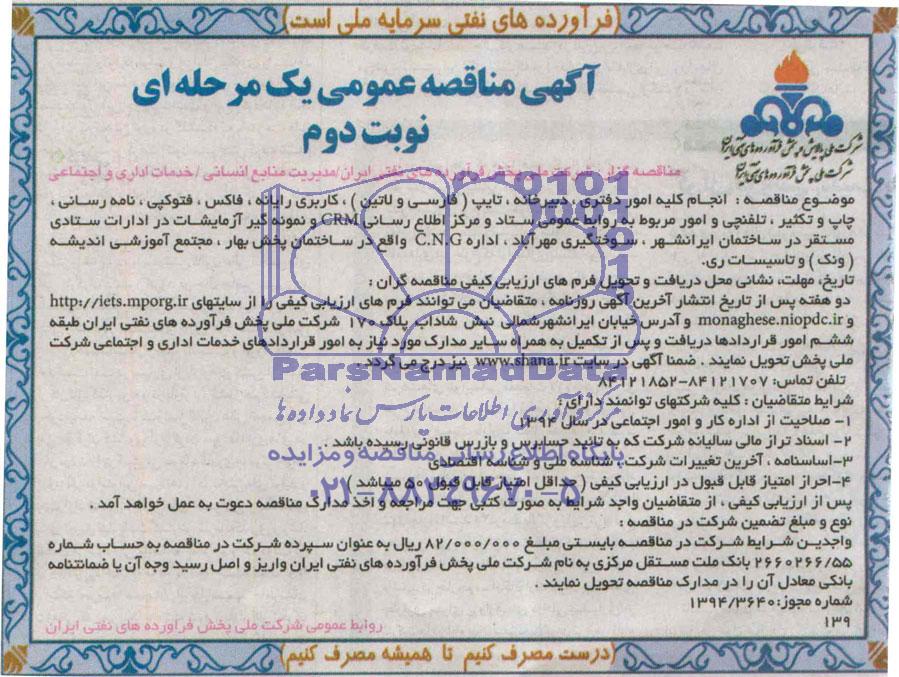 (فرآورده های نفتی سرمایه ملی است)
آگهی مناقصه عمومی یک مرحله ای
نوبت دوم
شرکت ملی پالایش و پخش فرآورده‌های نفتی ایران
شرکت ملی پخش فرآورده‌های نفتی ایران
مناقصه گزار: شرکت ملی پخش فرآورده های نفتی ایران/مدیریت منابع انسانی / خدمات اداری و اجتماعی
موضوع مناقصه : انجام کلیه امور دفتری ، دبیرخانه ، تایپ ( فارسی و لاتین ) ، کاربری رایانه ، فاکس ، فتوکپی ، نامه رسانی ،
چاپ و تکثیر ، تلفنچی و امور مربوط به روابط عمومی ستاد و مرکز اطلاع رسانی CRM و نمونه گیر آزمایشات در ادارات ستادی
مستقر در ساختمان ایرانشهر ، سوختگیری مهرآباد ، اداره C.N.G واقع در ساختمان پخش بهار ، مجتمع آموزشی اندیشه
( ونک ) و تاسیسات ری.
تاریخ، مهلت، نشانی محل دریافت و تحویل فرم های ارزیابی کیفی مناقصه گران :
دو هفته پس از تاریخ انتشار آخرین آگهی روزنامه ، متقاضیان می توانند فرم های ارزیابی کیفی را از سایتهای http://iets.mporg.ir
و monaghese.niopdc.ir و آدرس خیابان ایرانشهرشمالی نبش شاداب پلاک ۱۷۰ شرکت ملی پخش فرآورده های نفتی ایران طبقه
ششم امور قراردادها دریافت و پس از تکمیل به همراه سایر مدارک مورد نیاز به امور قراردادهای خدمات اداری و اجتماعی شرکت
ملی پخش تحویل نمایند . ضمنا آگهی در سایت www.shana.ir نیز درج می گردد.
تلفن تماس: ۸۴۱۲۱۷۰۷-۸۴۱۲۱۸۵۲
شرایط متقاضیان : کلیه شرکتهای توانمند دارای :
۱- صلاحیت از اداره کار و امور اجتماعی در سال ۱۳۹۴
۲- اسناد تراز مالی سالیانه شرکت که به تائید حسابرس و بازرس قانونی رسیده باشد .
۳-اساسنامه ، آخرین تغییرات شرکت ، شناسه ملی و شناسه اقتصادی
۴-احراز امتیاز قابل قبول در ارزیابی کیفی ( حداقل امتیاز قابل قبول ۵۰ میباشد )
پس از ارزیابی کیفی ، از متقاضیان واجد شرایط به صورت کتبی جهت مراجعه و اخذ مدارک مناقصه دعوت به عمل خواهد آمد .
نوع و مبلغ تضمین شرکت در مناقصه :
واجدین شرایط شرکت در مناقصه بایستی مبلغ ۸۲/۰۰۰/۰۰۰ ریال به عنوان سپرده شرکت در مناقصه به حساب شماره
۲۶۶۰۲۶۶/۵۵ بانک ملت مستقل مرکزی به نام شرکت ملی پخش فرآورده های نفتی ایران واریز و اصل رسید وجه آن یا ضمانتنامه
بانکی معادل آن را در مدارک مناقصه تحویل نمایند .
شماره مجوز: ۱۳۹۴/۳۶۴۰
۱۳۹
روابط عمومی شرکت ملی پخش فرآورده های نفتی ایران
(درست مصرف کنیم تا همیشه مصرف کنیم)
ParsNamadData
مرکز فرآوری اطلاعات پارس نماد داده ها
پایگاه اطلاع رسانی مناقصه و مزایده
۰۲۱-۸۸۳۴۹۶۷۰-۵